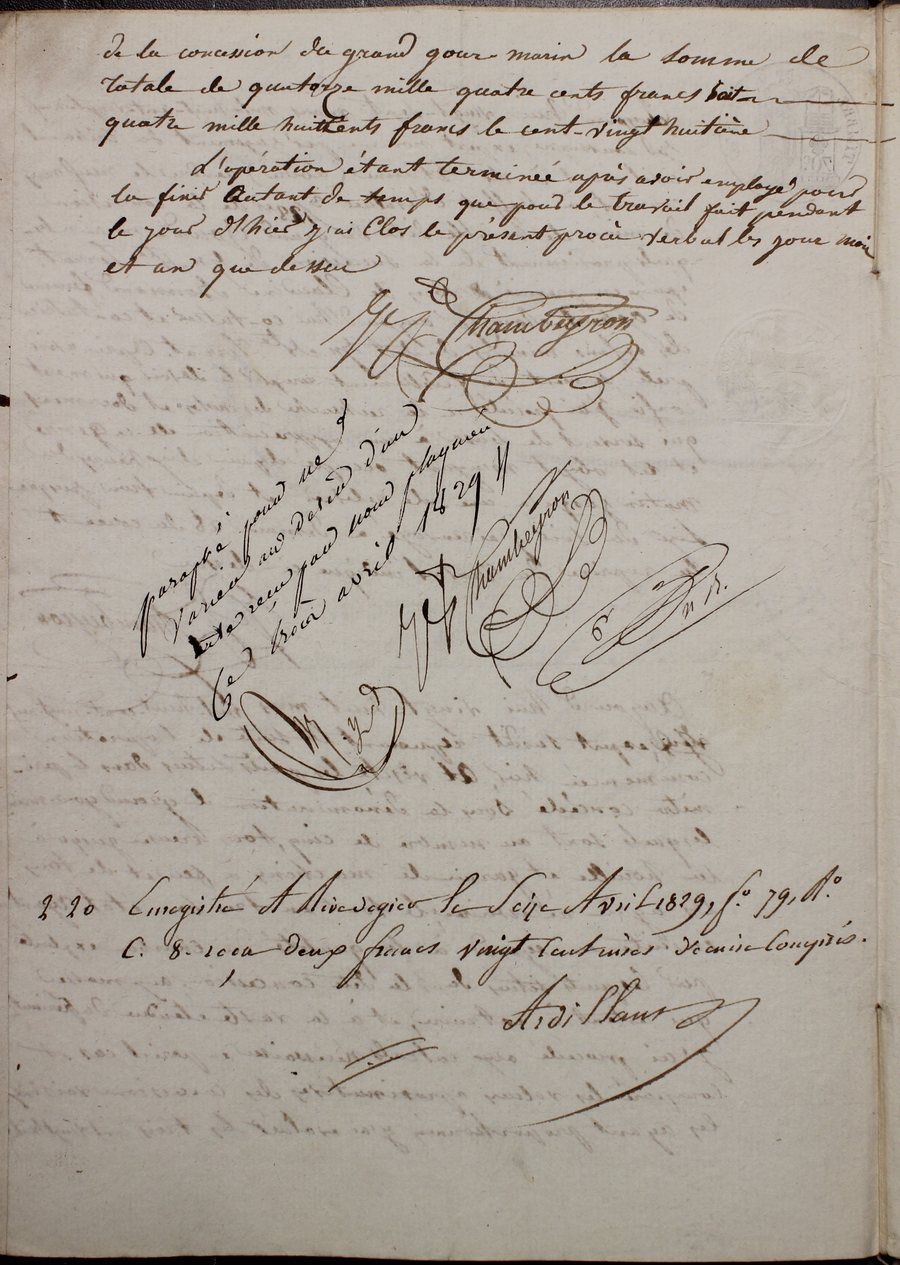 de la concession du grand gour marin la somme de
totale de quatorze mille quatre cents francs soit
quatre mille huit cents francs le cent-vingt huitième
L'opération étant terminée après avoir employé pour
la finir autant de temps que pour le travail fait pendant
le jour d'hier j'ai Clos le présent procès verbal les jour mois
et an que dessus
Chambeyron
paraphé pour ne
varier au desir d'un
acte reçu par nous
Ce trois avril 1829
Chambeyron
2 20 Enregistré A Rivedegier le Seize Avril 1829, fo. 79, Ro.
C. 8. reçu deux francs vingt Centimes decime Compris.
Ardillant